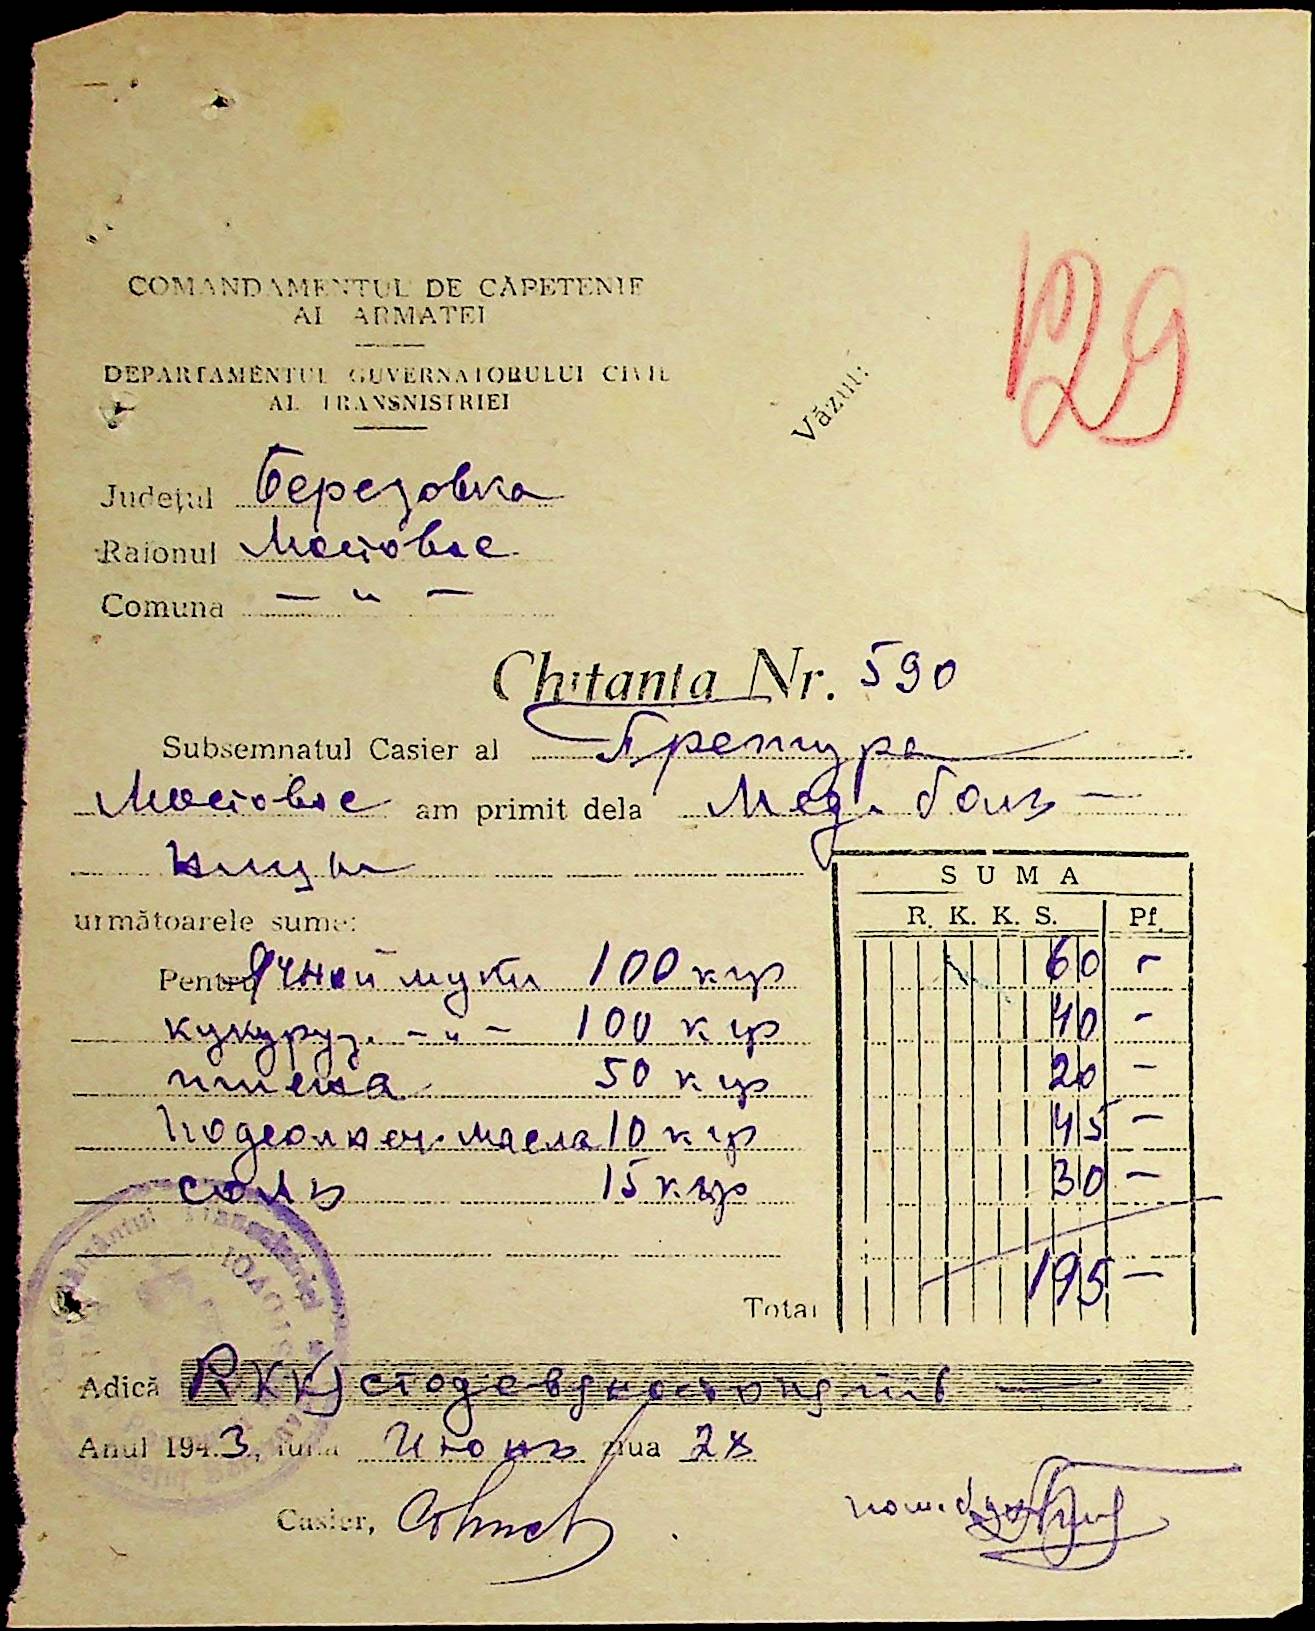 129
COMANDAMENTUL DE CĂPETENIE
AL ARMATEI
DEPARTAMENTUL GUVERNATORULUI CIVIL
AL TRANSNISTRIEI
Văzut:
Județul Березовка
Raionul Мостовое
Comuna — „ —
Chitanta Nr. 590
Subsemnatul Casier al Претура
Мостовое am primit dela Мед. боль—
ницы
SUMA
următoarele sume: R. K. K. S. Pf.
Pentru Ячной муки 100 кгр 60 -
кукуруз. - „ - 100 кгр 40 -
пшена 50 кгр 20 -
Подсолнеч. масла 10 кгр 45 -
соль 15 кгр 30 -
195 -
Total
Adică RKK) стодевяностопять —
Anul 1943, luna Июнь ziua 28
Casier,